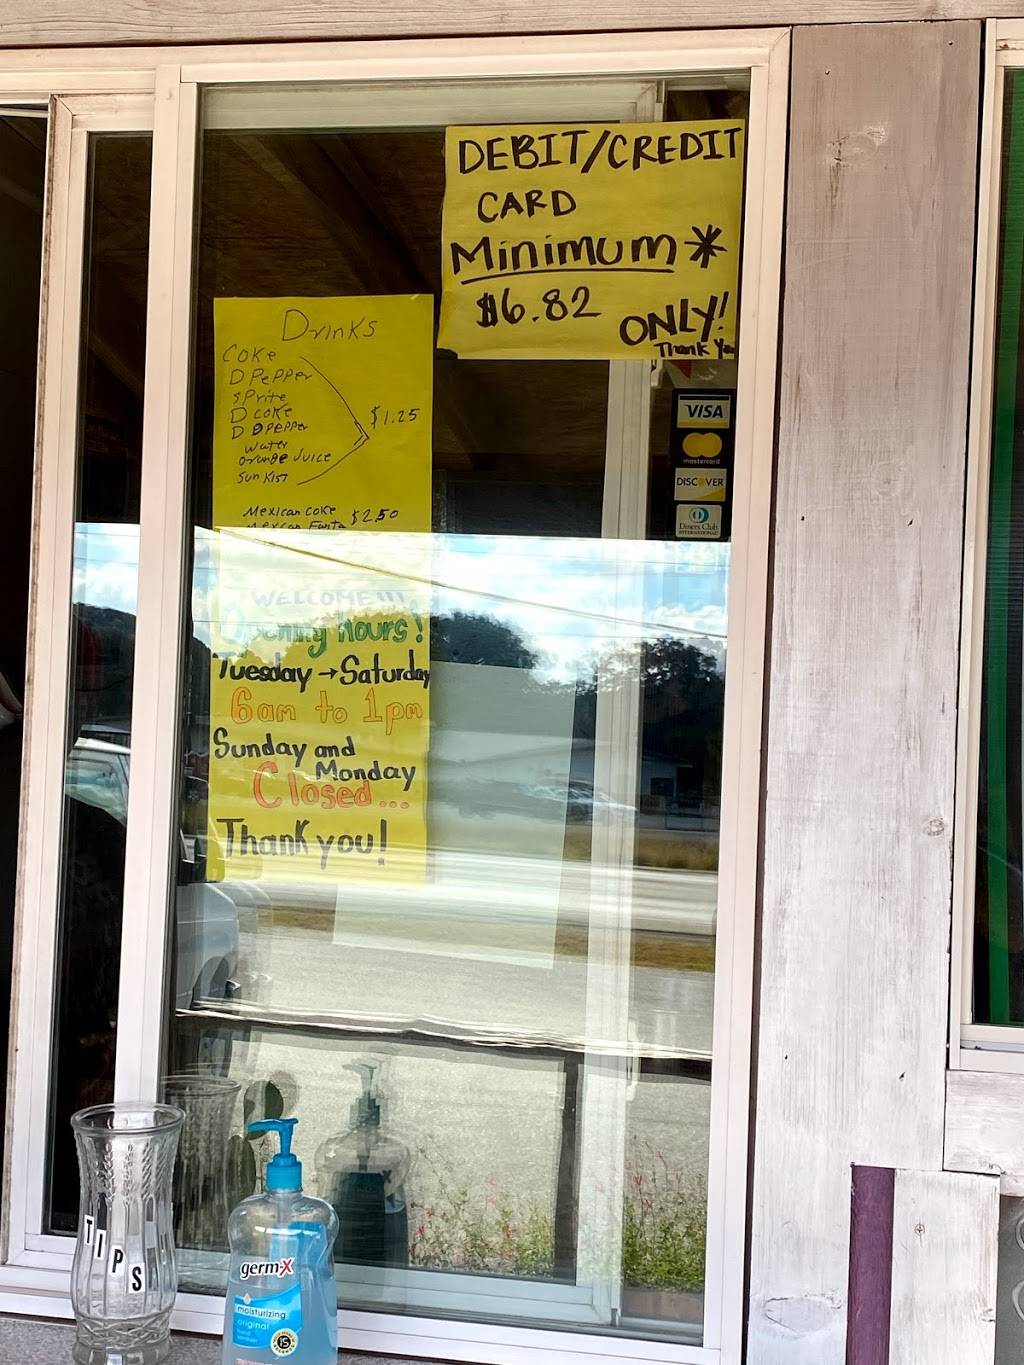 DEBIT/CREDIT
CARD
Minimum *
$6.82
ONLY!
Thank
Drinks
Coke
D Pepper
Sprite
D Coke
D D Pepper
$1.25
Water
Orange Juice
Sunkist
Mexican Coke $2.50
Mexican Fanta
VISA
mastercard
DISCOVER
Diners Club
INTERNATIONAL
WELCOME!!!
Opening hours!
Tuesday → Saturday
6am to 1pm
Sunday and
Monday
Closed...
Thank you!
TIPS
germ-X
moisturizing
original
hand
sanitizer